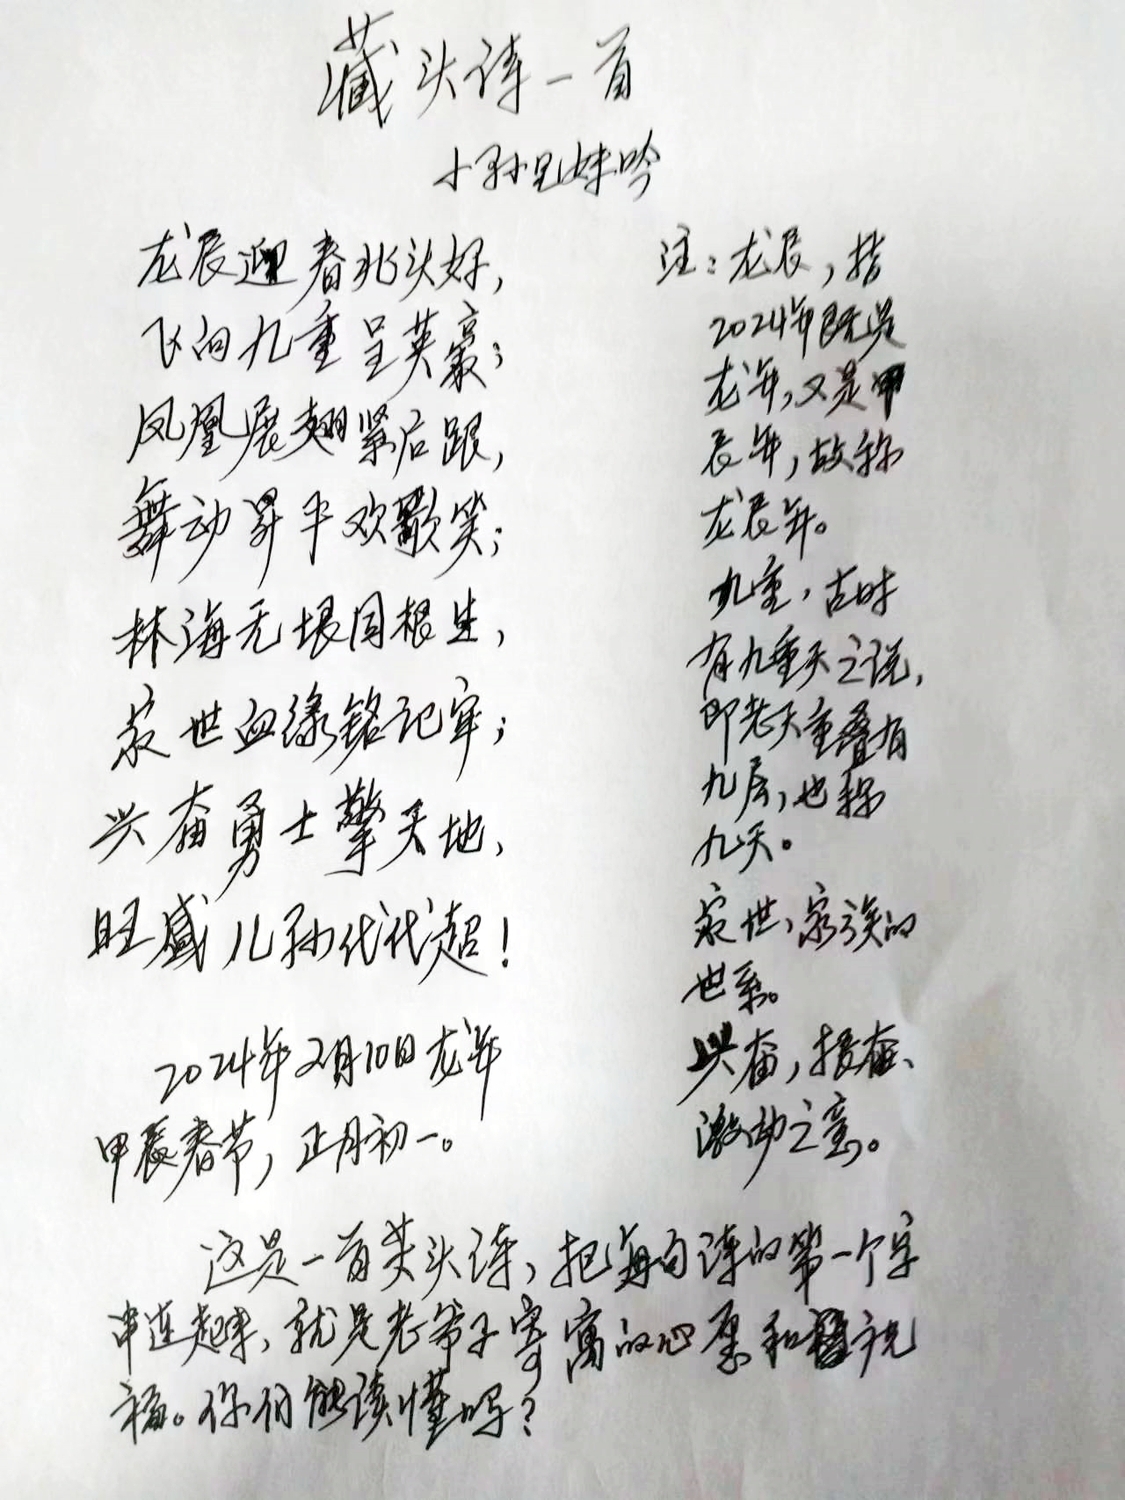 藏头诗一首
小孙兄妹吟
龙辰迎春兆头好，
飞向九重呈英豪；
凤凰展翅紧后跟，
舞动昇平欢歌笑；
林海无垠同根生，
家世血缘铭记牢；
兴奋勇士擎天地，
旺盛儿孙代代超！
2024年2月10日龙年
甲辰春节，正月初一。
注：龙辰，指
2024年既是
龙年，又是甲
辰年，故称
龙辰年。
九重，古时
有九重天之说，
即老天重叠有
九层，也称
九天。
家世，家族的
世系。
兴奋，振奋、
激动之意。
这是一首藏头诗，把每句诗的第一个字
串连起来，就是老爷子寄寓的心愿和祝
福。你们能读懂吗？